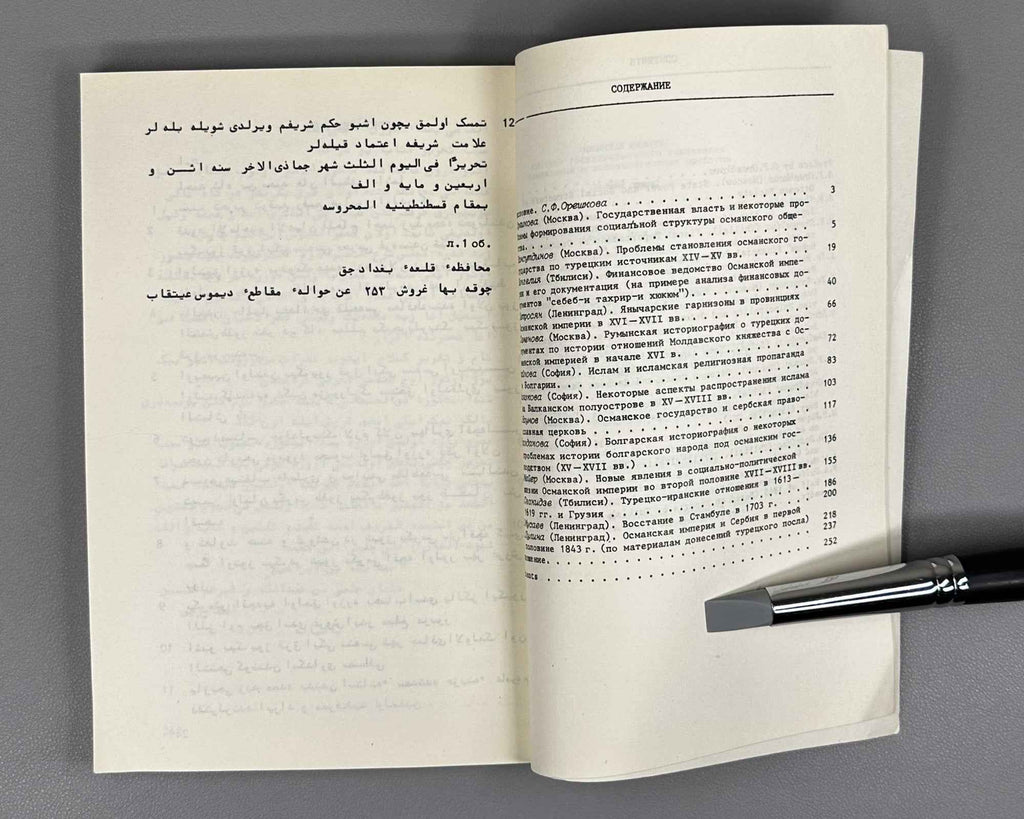 12 تمسك اولمق يچون اشبو حكم شريفم ويرلدى شويله بله لر
علامت شريفه اعتماد قيله لر
تحريرًا فى اليوم الثلث شهر جماذى الاخر سنه اثـــن و
اربعين و مايه و الف
بمقام قسطنطينيه المحروسه
л.1 об.
محافظهٔ قلعهٔ بغداد جق
چوقه بها غروش ٢٥٣ عن حوالهٔ مقاطعهٔ ديموس عينتقاب
СОДЕРЖАНИЕ
С.Ф.Орешкова . . . 3
(Москва). Государственная власть и некоторые про-
формирования социальной структуры османского обще-
. . . 5
(Москва). Проблемы становления османского го-
по турецким источникам XIV—XV вв. . . . 19
(Тбилиси). Финансовое ведомство Османской импе-
и его документация (на примере анализа финансовых до-
"себеб-и тахрир-и хюкюм"). . . . 40
(Ленинград). Янычарские гарнизоны в провинциях
империи в XVI—XVII вв. . . . 66
(Москва). Румынская историография о турецких до-
по истории отношений Молдавского княжества с Ос-
империей в начале XVI в. . . . 72
(София). Ислам и исламская религиозная пропаганда
Болгарии. . . . 83
(София). Некоторые аспекты распространения ислама
Балканском полуострове в XV—XVIII вв. . . . 103
(Москва). Османское государство и сербская право-
церковь . . . 117
(София). Болгарская историография о некоторых
проблемах истории болгарского народа под османским гос-
(XV—XVII вв.) . . . 136
(Москва). Новые явления в социально-политической
Османской империи во второй половине XVII—XVIII вв. 155
(Тбилиси). Турецко-иранские отношения в 1613—
1619 гг. и Грузия . . . 186
(Ленинград). Восстание в Стамбуле в 1703 г. 200
(Ленинград). Османская империя и Сербия в первой
половине 1843 г. (по материалам донесений турецкого посла) 218
. . . 237
. . . 252